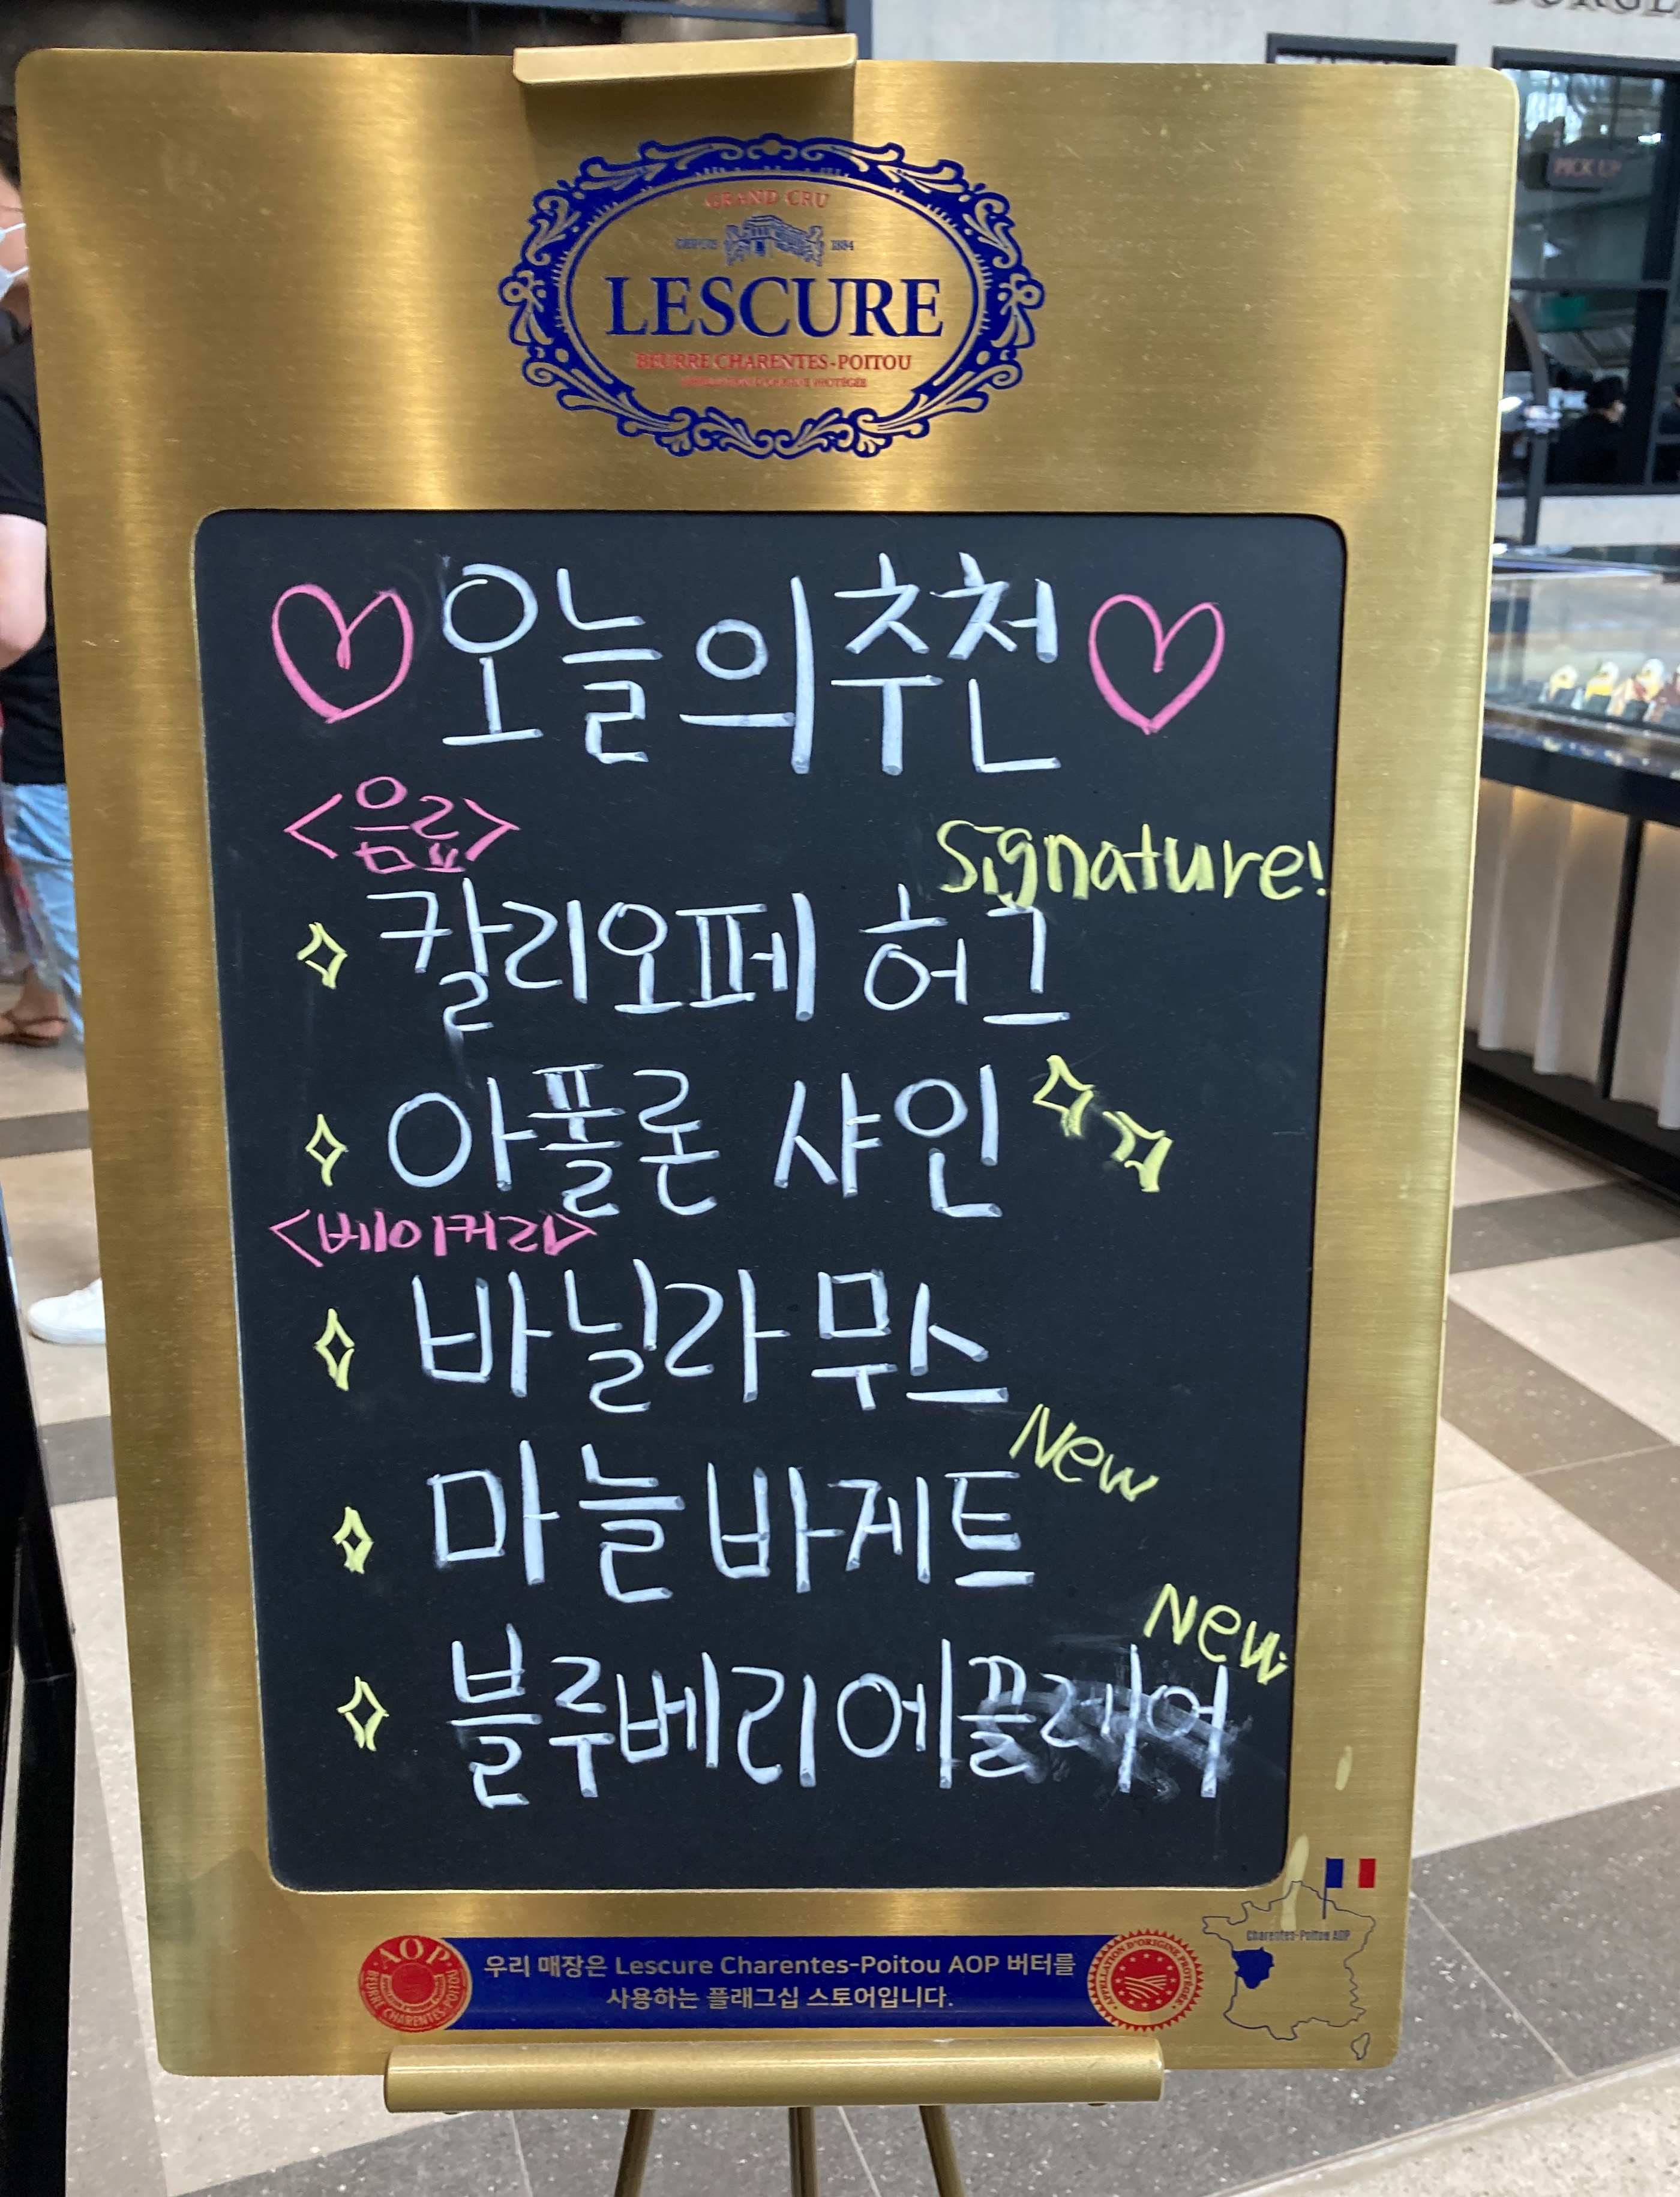 GRAND CRU
DEPUIS 1884
LESCURE
BEURRE CHARENTES-POITOU
오늘의추천
<음료>
Signature!
칼리오페 허그
아폴론 샤인
<베이커리>
바닐라 무스
New
마늘바게트
New
블루베리에끌레어
우리 매장은 Lescure Charentes-Poitou AOP 버터를
사용하는 플래그십 스토어입니다.
AOP
BEURRE CHARENTES-POITOU
APPELLATION D'ORIGINE PROTÉGÉE
Charentes-Poitou AOP
PICK UP